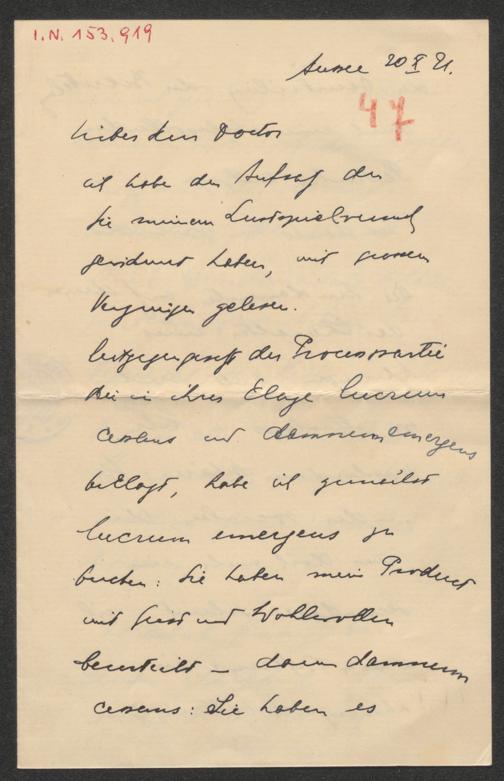 I.N. 153.919
Aussee 20 X 21.
47
Lieber Herr Doctor
ich habe den Aufsatz den
Sie meinem Lustspielversuch
gewidmet haben, mit grossem
Vergnügen gelesen.
Entgegengesetzt der Processpartei
die in ihrer Klage lucrum
cessans und damnum emergens
beklagt, habe ich zunächst
lucrum emergens zu
buchen: Sie haben mein Product
mit Ernst und Wohlwollen
beurteilt – dann damnum
cessans: Sie haben es